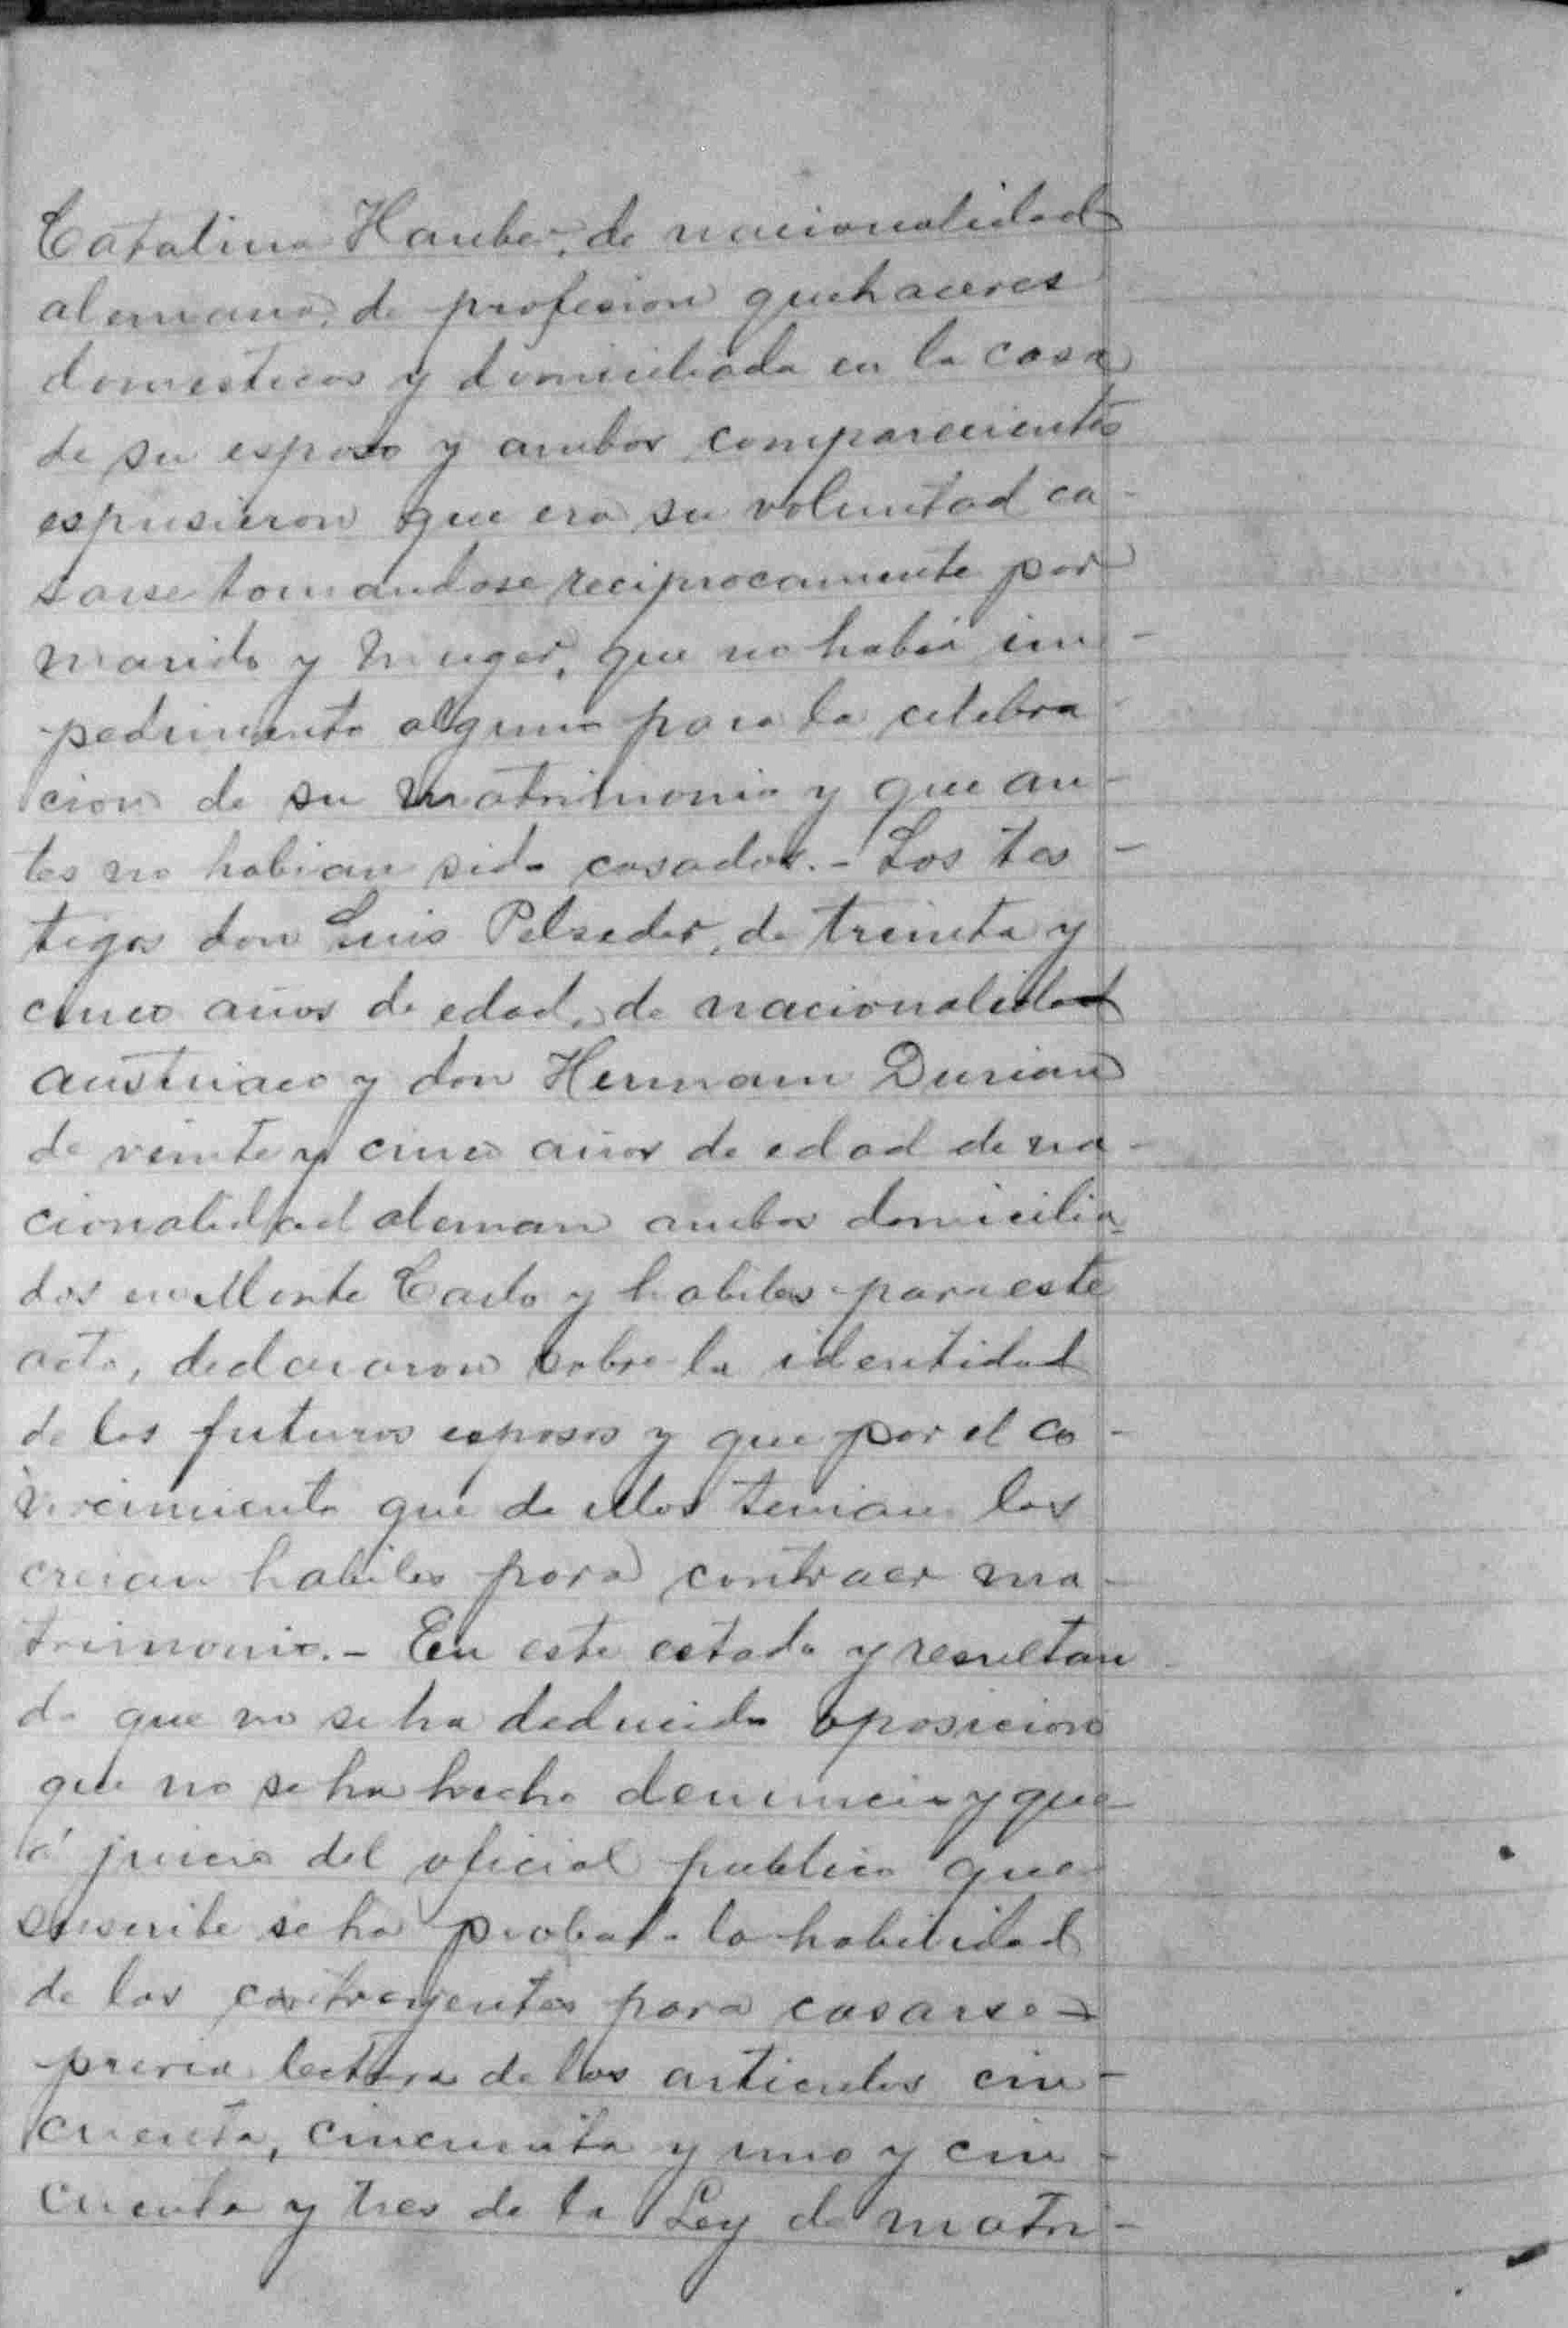 Catalina Hauber, de nacionalidad
alemana, de profesion quehaceres
domesticos y domiciliada en la casa
de su esposo y ambos comparecientes
espusieron que era su voluntad ca-
sarse tomandose reciprocamente por
marido y muger, que no había im-
pedimento alguno para la celebra-
cion de su matrimonio y que an-
tes no habian sido casados.- Los tes-
tigos don Luis Pelzeder, de treinta y
cinco años de edad, de nacionalidad
austriaco y don Hermann Durian
de veinte y cinco años de edad de na-
cionalidad aleman ambos domicilia-
dos en Monte Carlo y habiles para este
acto, declararon sobre la identidad
de los futuros esposos y que por el co-
nocimiento que de ellos tenian los
creian habiles para contraer ma-
trimonio.- En este estado y resultan-
do que no se ha deducido oposicion
que no se ha hecho denuncia y que
á juicio del oficial publico que
suscribe se ha probado la habilidad
de los contrayentes para casarse -
previa lectura de los articulos cin-
cuenta, cincuenta y uno y cin-
cuenta y tres de la Ley de matri-